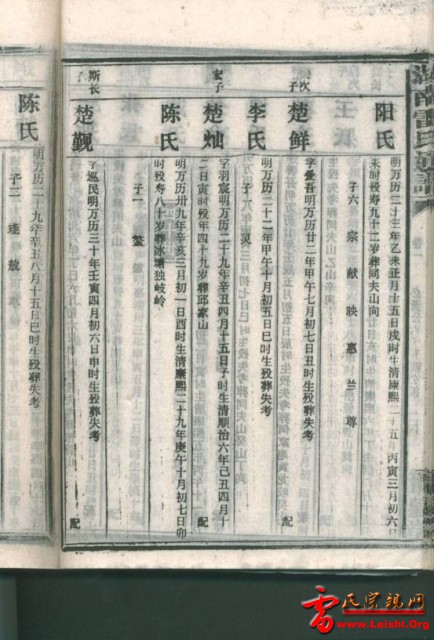 湖南雷氏通譜
阳氏
明万历二十三年乙未正月十五戌时生清康熙二十五丙寅三月初六日
未时殁寿九十二岁葬同夫山向
子六 宗 献 映 惠 兰 尊
次子
楚鲜
字叠吾明万历廿二年甲午七月初七日丑时生殁葬失考
配
李氏
明万历二十二年甲午十月初五日巳时生殁葬失考
子 灵
宏子
楚灿
字羽宸明万历二十九年辛丑四月十五日子时生清顺治六年己丑四月十
二日寅时殁年四十九岁葬邱家山
配
陈氏
明万历卅九年辛亥三月初一日酉时生清康熙二十九年庚午十月初七日卯
时殁寿八十岁葬冰塘独岐岭
子一
斯长子
楚觐
字巡民明万历三十年壬寅四月初六日申时生殁葬失考
配
陈氏
明万历二十九年辛丑八月十五日巳时生殁葬失考
子二 珪 敖
雷氏宗親网
www.Leishi.Org